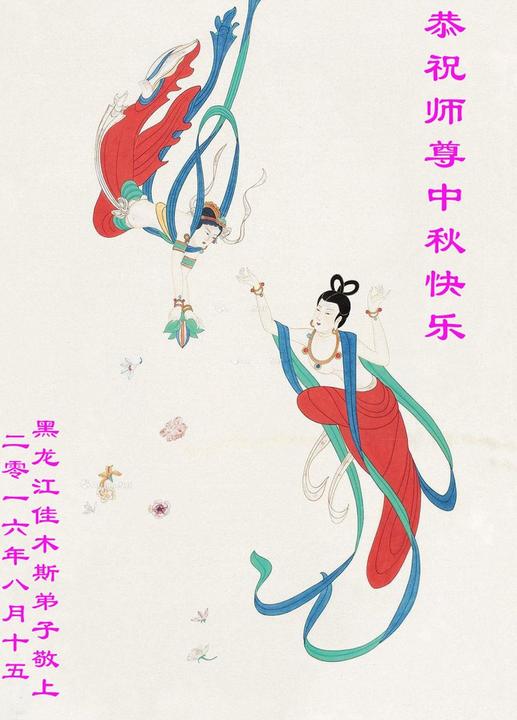 恭祝师尊中秋快乐
黑龙江佳木斯弟子敬上
二零一六年八月十五